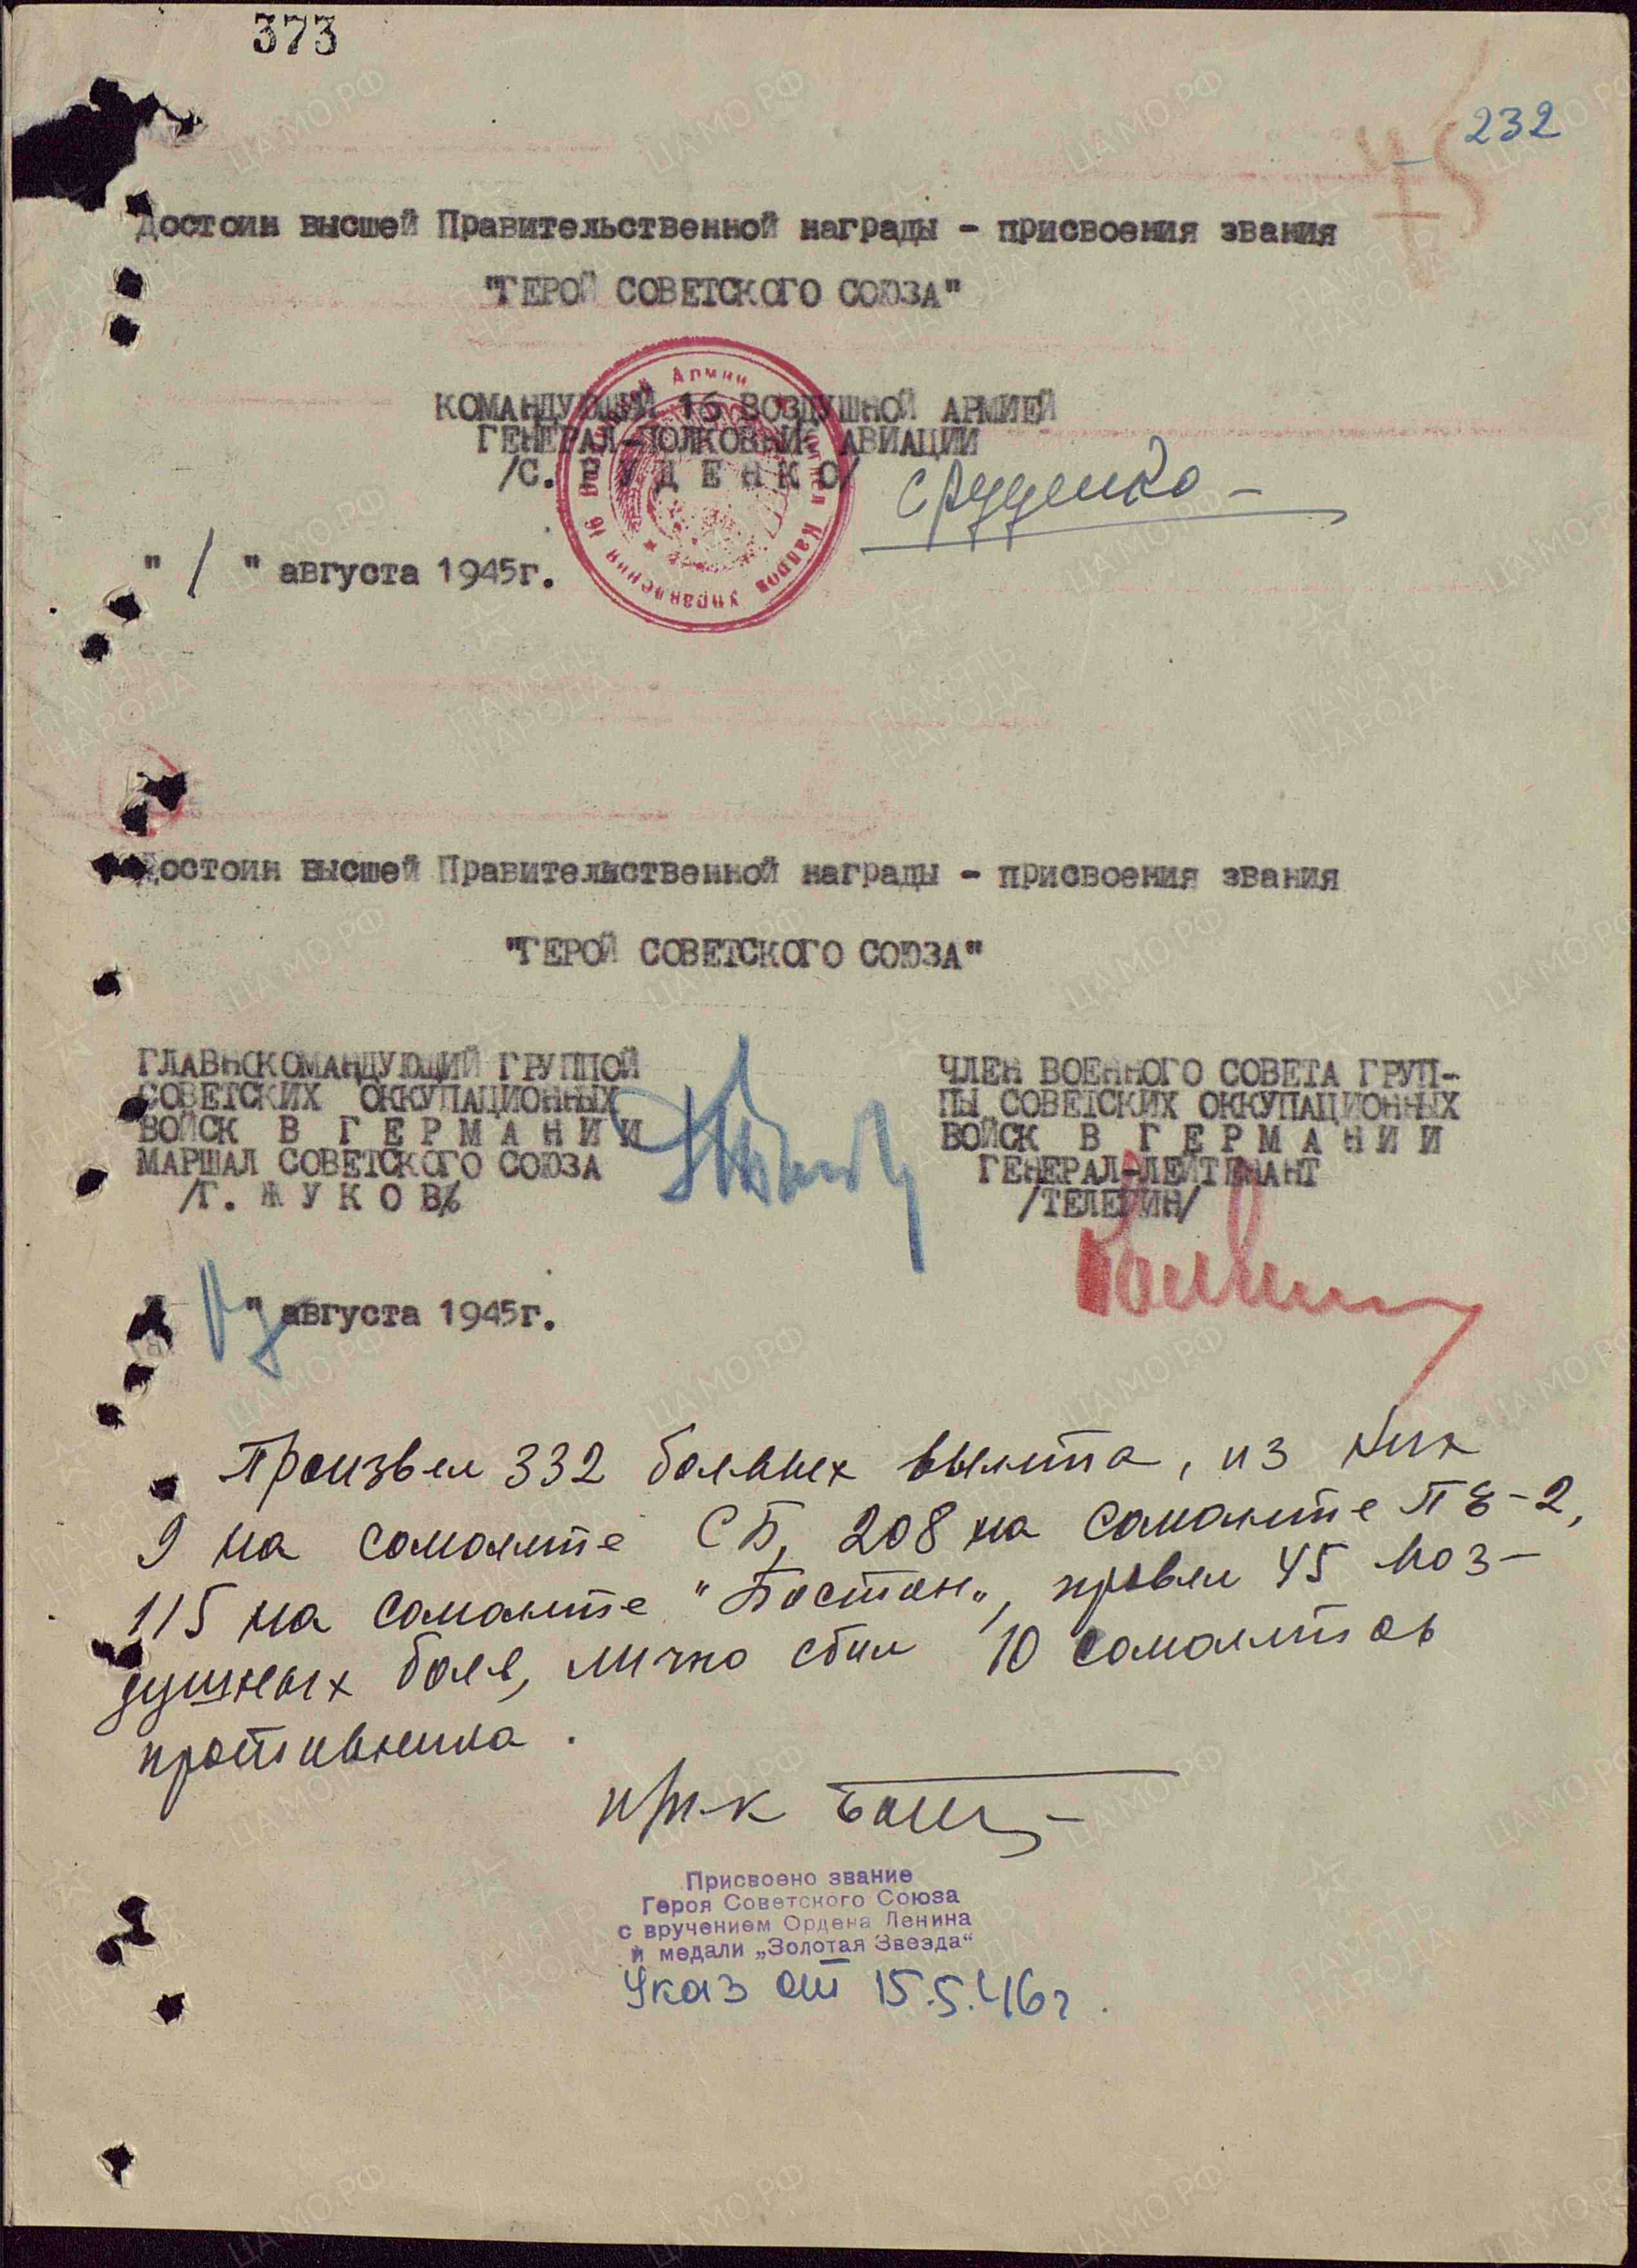 373
232
45
Достоин высшей Правительственной награды - присвоения звания
"ГЕРОЙ СОВЕТСКОГО СОЮЗА"
КОМАНДУЮЩИЙ 16 ВОЗДУШНОЙ АРМИЕЙ
ГЕНЕРАЛ-ПОЛКОВНИК АВИАЦИИ
/С. Р У Д Е Н К О/
СРуденко
" / " августа 1945г.
Достоин высшей Правительственной награды - присвоения звания
"ГЕРОЙ СОВЕТСКОГО СОЮЗА"
ГЛАВНОКОМАНДУЮЩИЙ ГРУППОЙ
СОВЕТСКИХ ОККУПАЦИОННЫХ
ВОЙСК В Г Е Р М А Н И И
МАРШАЛ СОВЕТСКОГО СОЮЗА
/Г. Ж У К О В/
ЧЛЕН ВОЕННОГО СОВЕТА ГРУП-
ПЫ СОВЕТСКИХ ОККУПАЦИОННЫХ
ВОЙСК В Г Е Р М А Н И И
ГЕНЕРАЛ-ЛЕЙТЕНАНТ
/ТЕЛЕГИН/
" августа 1945г.
Произвел 332 боевых вылета, из них
9 на самолете СБ, 208 на самолете ПЕ-2,
115 на самолете "Бостон", провел 45 воз-
душных боев, лично сбил 10 самолетов
противника.
Присвоено звание
Героя Советского Союза
с вручением Ордена Ленина
и медали „Золотая Звезда"
Указ от 15.5.46г.